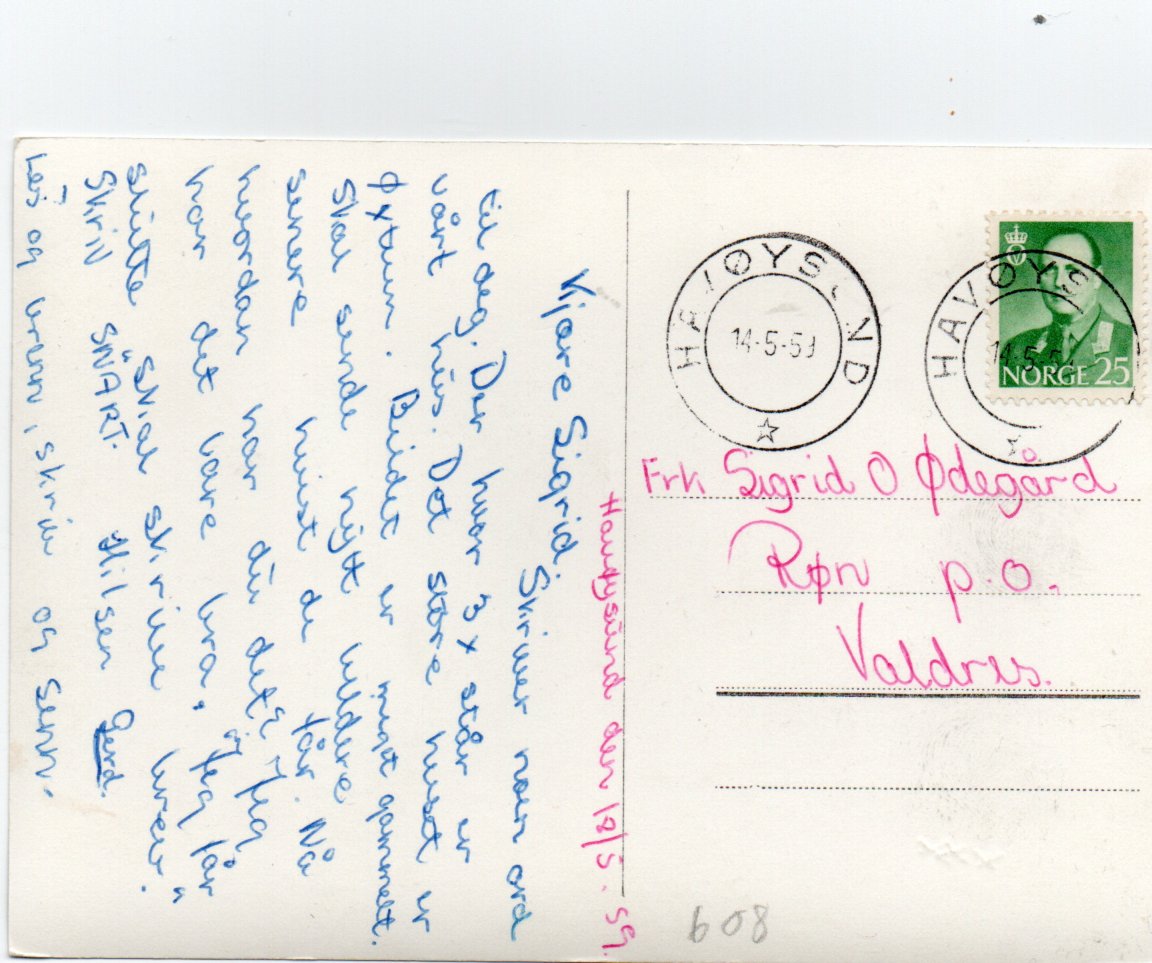 Havøysund den 12/5. 59.
Kjære Sigrid.
Skriver noen ord
til deg. Der hvor 3 x står er
vårt hus. Det større huset er
Bildet er meget gammelt.
Skal sende nytt bildere
senere hvist de får. Nå
hvordan har du det? Jeg
har det bare bra. Jeg får
slutte "Skal skrive brev."
Skriv SNART. Hilsen Gerd.
Les og brenn, skriv og senn.
HAVØYSUND
14-5-59
HAVØYS
14-5-59
NORGE 25
Frk Sigrid O Ødegård
Røn p.o.
Valdres.
608